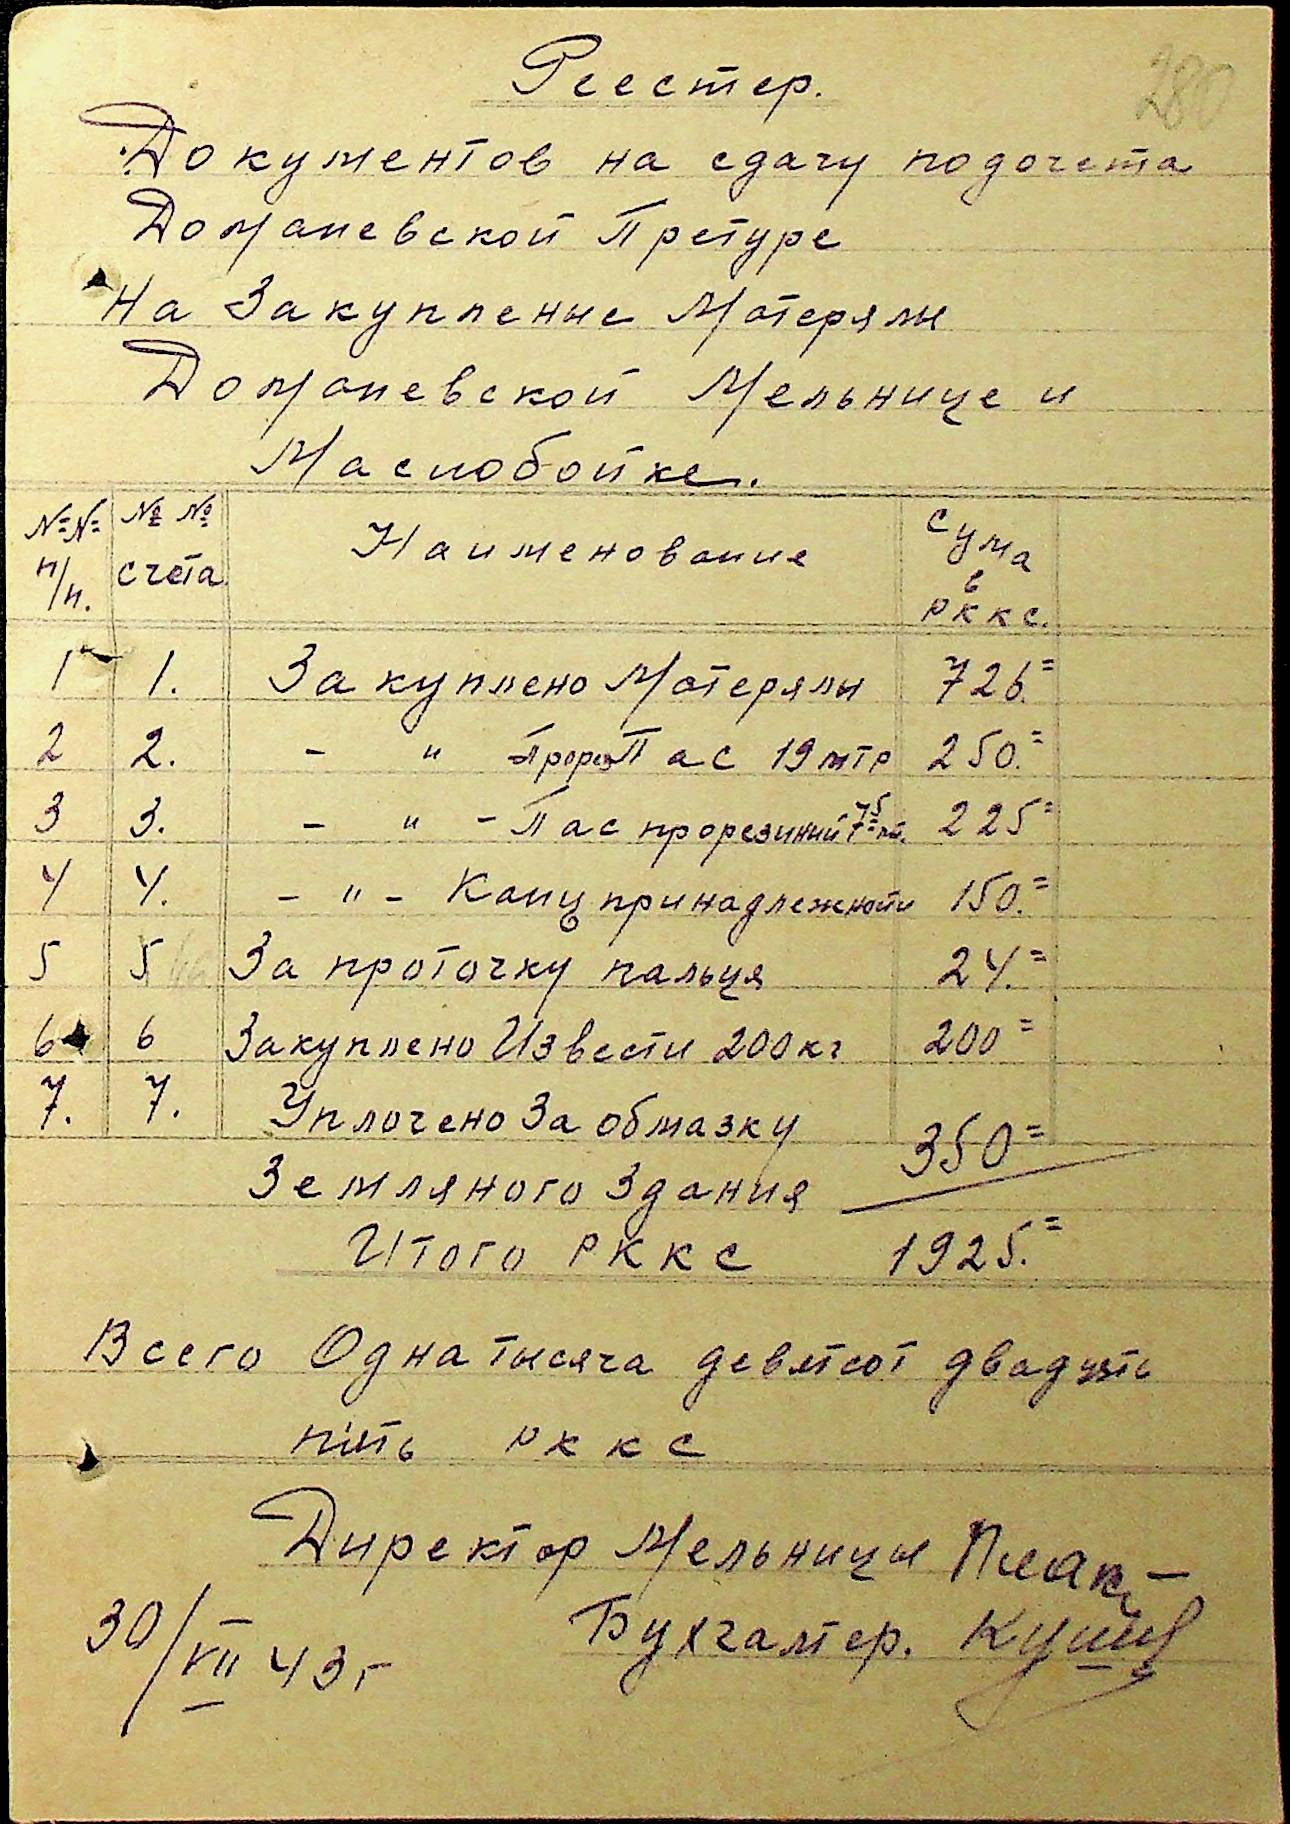 Реестер.
280
Документов на сдачу подочета
Доманевской Претуре
На Закупленые Мотерялы
Доманевской Мельнице и
Маслобойке.
№№ п/п. №№ счета Наименование Сума в РККС.
1 1. Закуплено Мотерялы 726.=
2 2. - " Прорез Пас 19 мтр 250.=
3 3. - " - Пас прорезиний 7=75 мт. 225=
4 4. - " - Канц принадлежности 150.=
5 5 За проточку пальця 24.=
6 6 Закуплено Извести 200 кг 200=
7. 7. Уплочено За обмазку
Земляного Здания 350=
Итого РККС 1925.=
Всего Одна тысяча девятсот двадцять
пять РККС
Директор Мельницы
Бухгалтер.
30/VII 43 г